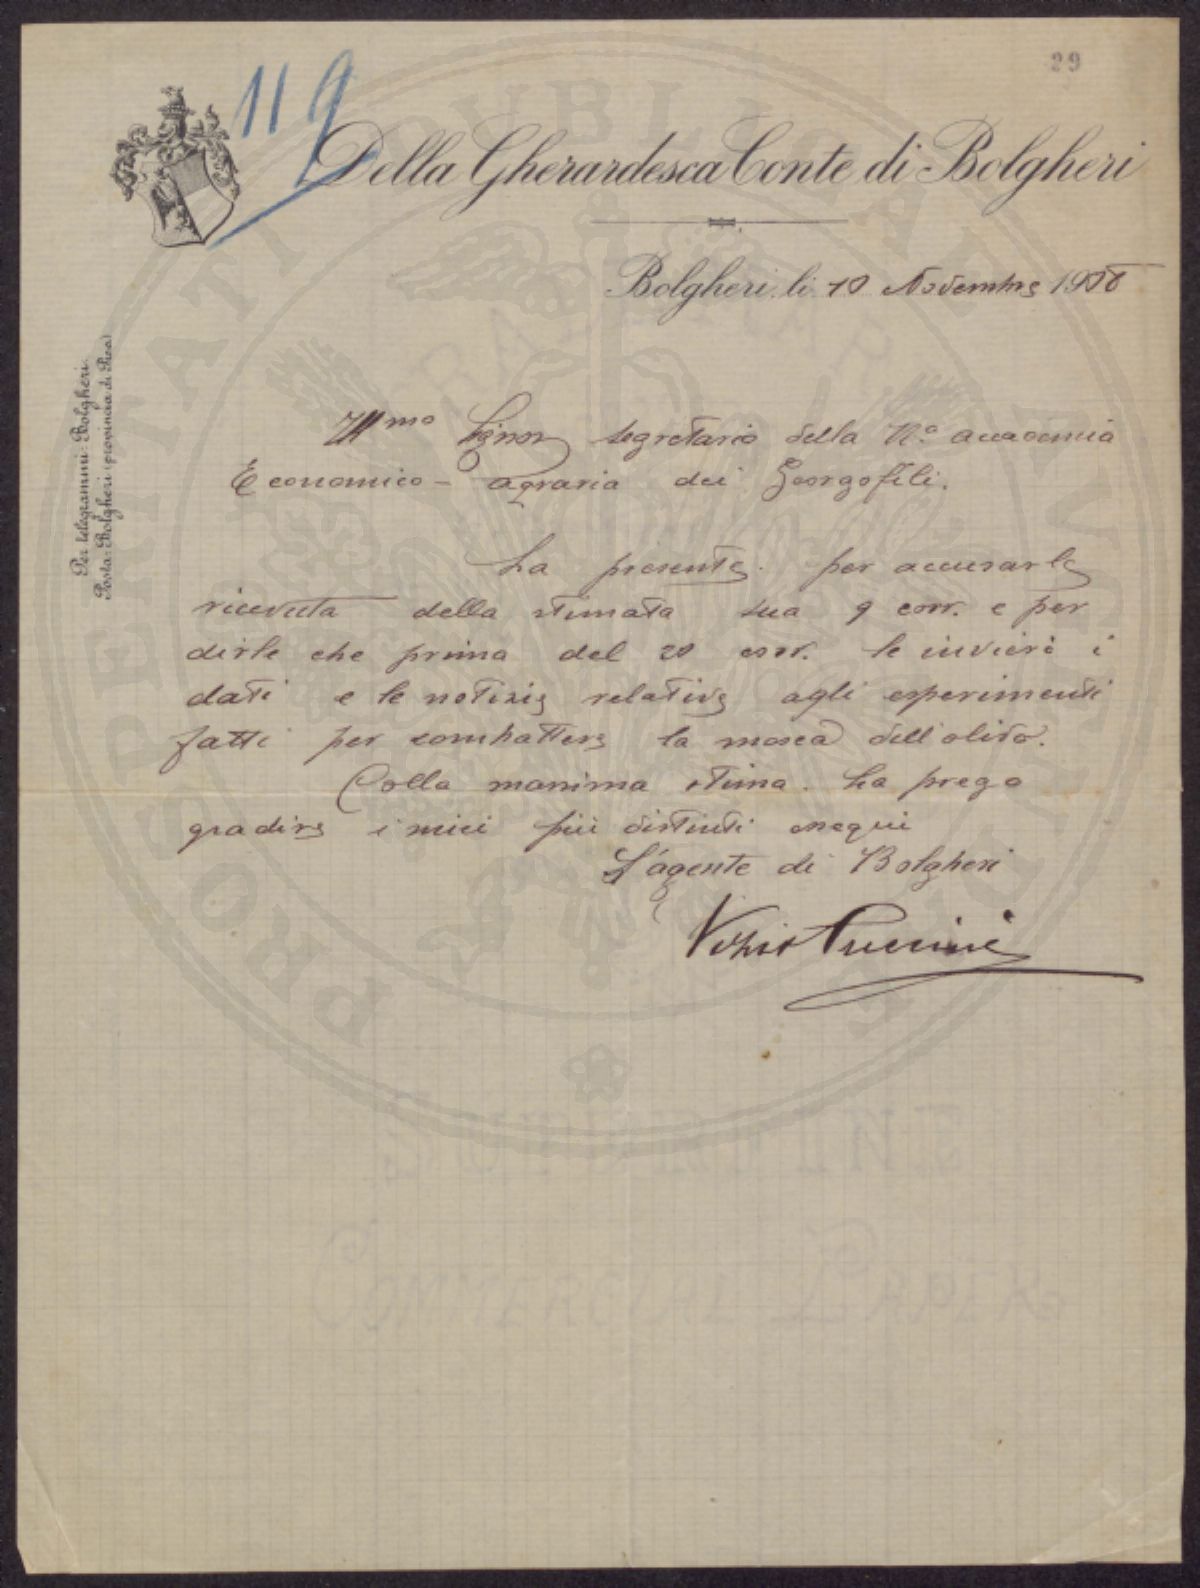 29
119
Della Gherardesca Conte di Bolgheri
Bolgheri, li 10 Novembre 1908
Per telegrammi: Bolgheri.
Posta: Bolgheri (provincia di Pisa)
Ill.mo Signor Segretario della R.a accademia
Economico - agraria dei Georgofili.
La presente per accusarle
ricevuta della stimata sua 9 corr. e per
dirle che prima del 20 corr. le invierò i
dati e le notizie relative agli esperimenti
fatti per combattere la mosca dell'olivo.
Colla massima stima. La prego
gradire i miei più distinti ossequi
L'agente di Bolgheri
Puccini
PROSPERITATI PUBLICAE